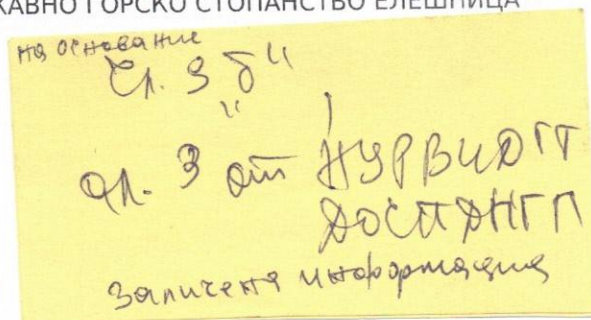 КАВНО ГОРСКО СТОПАНСТВО ЕЛЕШНИЦА
на основание
чл. 3 б "
"
ал. 3 от НУРВИДГТ
ДОСПДНГП
Заличена информация